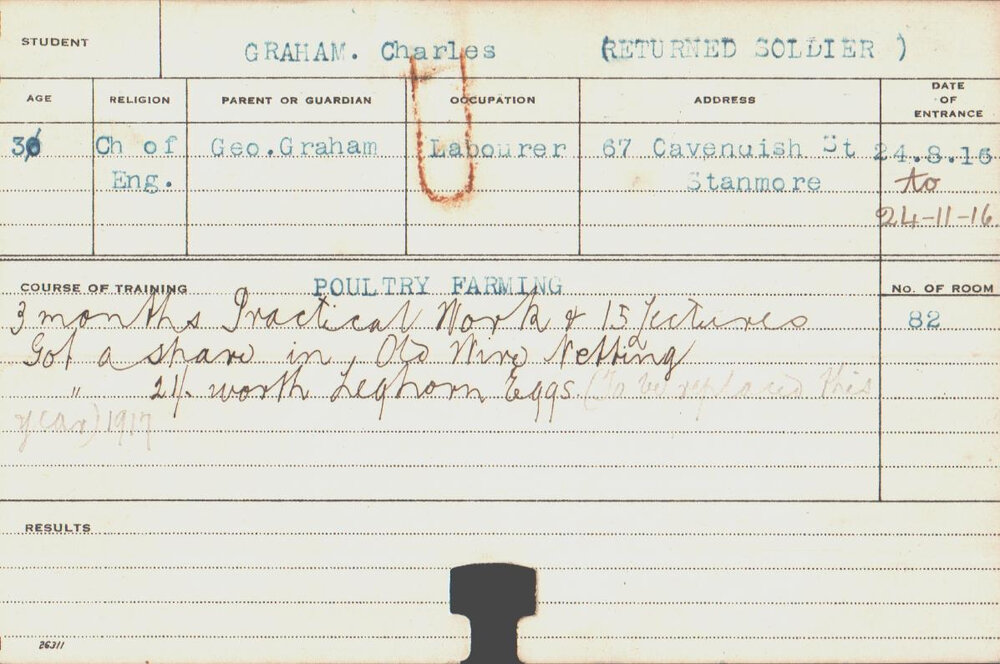 STUDENT GRAHAM. Charles (RETURNED SOLDIER )
AGE RELIGION PARENT OR GUARDIAN OCCUPATION ADDRESS DATE OF ENTRANCE
Ch of Geo.Graham Labourer 67 Cavendish St 24.8.16
Eng. Stanmore to
24-11-16.
COURSE OF TRAINING POULTRY FARMING No. OF ROOM
3 months Practical Work & 15 Lectures 82
Got a share in Old Wire Netting
" 21/- worth Leghorn Eggs (To be replaced this
year) 1917
RESULTS
26311